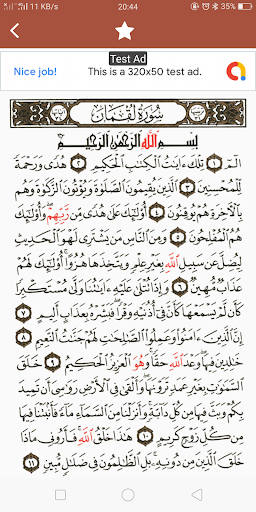 .ııl .ııl 11 KB/s 20:44 82
Test Ad
Nice job! This is a 320x50 test ad.
سُورَةُ لُقْمَان
بِسْمِ اللَّهِ الرَّحْمَٰنِ الرَّحِيمِ
الٓمٓ ١ تِلْكَ ءَايَٰتُ الْكِتَٰبِ الْحَكِيمِ ٢ هُدًى وَرَحْمَةً
لِّلْمُحْسِنِينَ ٣ الَّذِينَ يُقِيمُونَ الصَّلَوٰةَ وَيُؤْتُونَ الزَّكَوٰةَ وَهُم
بِالْءَاخِرَةِ هُمْ يُوقِنُونَ ٤ أُوْلَٰٓئِكَ عَلَىٰ هُدًى مِّن رَّبِّهِمْ وَأُوْلَٰٓئِكَ
هُمُ الْمُفْلِحُونَ ٥ وَمِنَ النَّاسِ مَن يَشْتَرِى لَهْوَ الْحَدِيثِ
لِيُضِلَّ عَن سَبِيلِ اللَّهِ بِغَيْرِ عِلْمٍ وَيَتَّخِذَهَا هُزُوًا أُوْلَٰٓئِكَ لَهُمْ
عَذَابٌ مُّهِينٌ ٦ وَإِذَا تُتْلَىٰ عَلَيْهِ ءَايَٰتُنَا وَلَّىٰ مُسْتَكْبِرًا
كَأَن لَّمْ يَسْمَعْهَا كَأَنَّ فِىٓ أُذُنَيْهِ وَقْرًا فَبَشِّرْهُ بِعَذَابٍ أَلِيمٍ ٧
إِنَّ الَّذِينَ ءَامَنُوا وَعَمِلُوا الصَّٰلِحَٰتِ لَهُمْ جَنَّٰتُ النَّعِيمِ ٨
خَٰلِدِينَ فِيهَا وَعْدَ اللَّهِ حَقًّا وَهُوَ الْعَزِيزُ الْحَكِيمُ ٩ خَلَقَ
السَّمَٰوَٰتِ بِغَيْرِ عَمَدٍ تَرَوْنَهَا وَأَلْقَىٰ فِى الْأَرْضِ رَوَٰسِىَ أَن تَمِيدَ
بِكُمْ وَبَثَّ فِيهَا مِن كُلِّ دَآبَّةٍ وَأَنزَلْنَا مِنَ السَّمَآءِ مَآءً فَأَنۢبَتْنَا فِيهَا
مِن كُلِّ زَوْجٍ كَرِيمٍ ١٠ هَٰذَا خَلْقُ اللَّهِ فَأَرُونِى مَاذَا
خَلَقَ الَّذِينَ مِن دُونِهِ بَلِ الظَّٰلِمُونَ فِى ضَلَٰلٍ مُّبِينٍ ١١